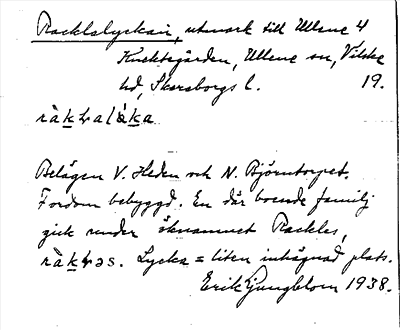 Racklalyckan, utmark till Ullene 4
Knektegården, Ullene sn, Vilske
hd, Skaraborgs l. 19.
Belägen V. Heden och N. Björntorpet.
Fordom bebyggd. En där boende familj
gick under öknamnet Rackles,
Lycka = liten inhägnad plats.
Erik Ljungblom 1938.